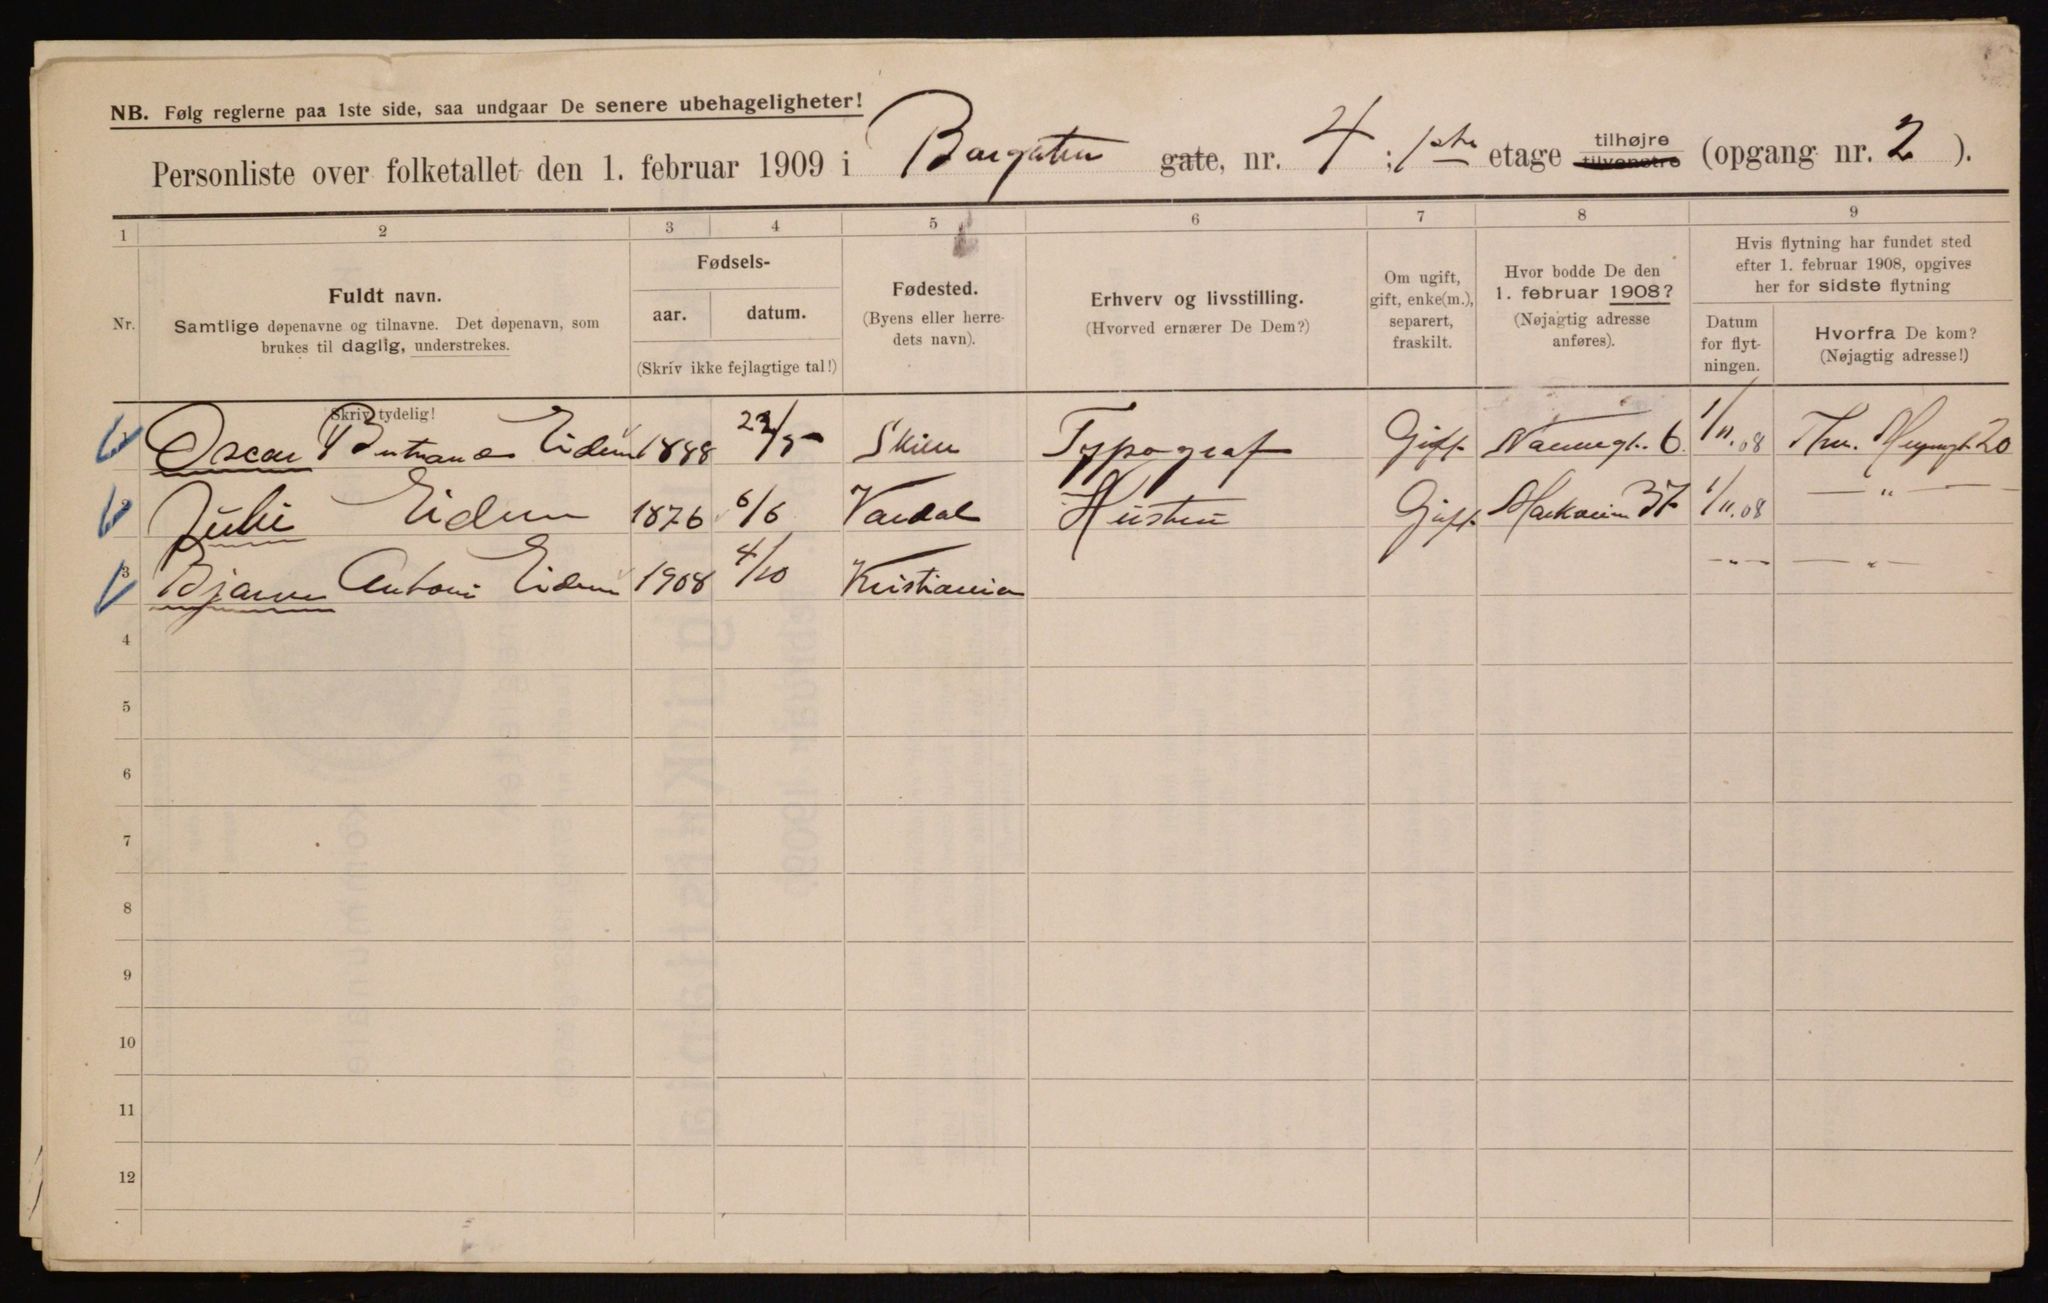 NB. Følg reglerne paa 1ste side, saa undgaar De senere ubehageligheter!
Personliste over folketallet den 1. februar 1909 i Borgaten gate, nr. 4 ; 1ste etage tilhøjre tilvenstre (opgang nr. 2 ).
1 2 3 4 5 6 7 8 9
Nr.
Fuldt navn.
Samtlige døpenavne og tilnavne. Det døpenavn, som
brukes til daglig, understrekes.
Skriv tydelig!
Fødsels-
aar. datum.
(Skriv ikke fejlagtige tal!)
Fødested.
(Byens eller herre-
dets navn).
Erhverv og livsstilling.
(Hvorved ernærer De Dem?)
Om ugift,
gift, enke(m.),
separert,
fraskilt.
Hvor bodde De den
1. februar 1908?
(Nøjagtig adresse
anføres).
Hvis flytning har fundet sted
efter 1. februar 1908, opgives
her for sidste flytning
Datum
for flyt-
ningen.
Hvorfra De kom?
(Nøjagtig adresse!)
1 Oscar Eidem 1888 Skien Typograf Gift 6 1/11.08 20
2 Julie Eidem 1876 6/6 Vardal Hustru Gift Markveien 37 1/11.08 — " —
3 Bjarne Antoni Eidem 1908 4/10 Kristiania — " — — " —
4
5
6
7
8
9
10
11
12